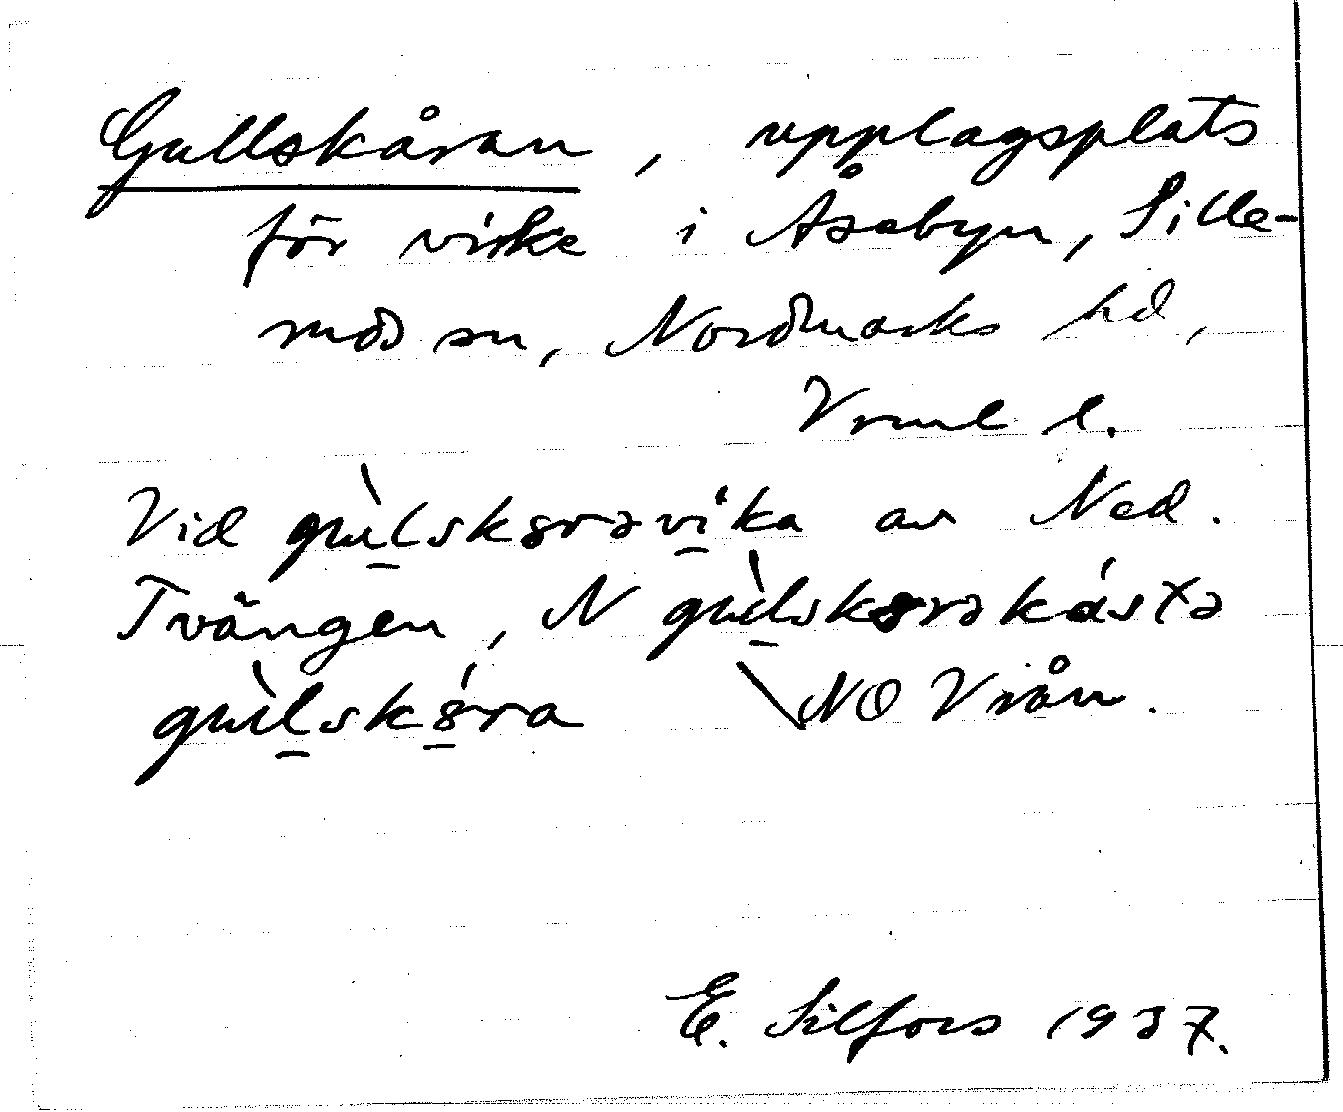 Gullskåran, upplagsplats
för virke i Åsebyn, Sille-
mod sn, Nordmarks hd,
Vrml l.
Vid gùlskȣrəvi'ka av Ned.
Tvängen, N gùlskȣrəkástə
gùlskȣ́ra \ NO Vrån.
E. Silfors 1937.